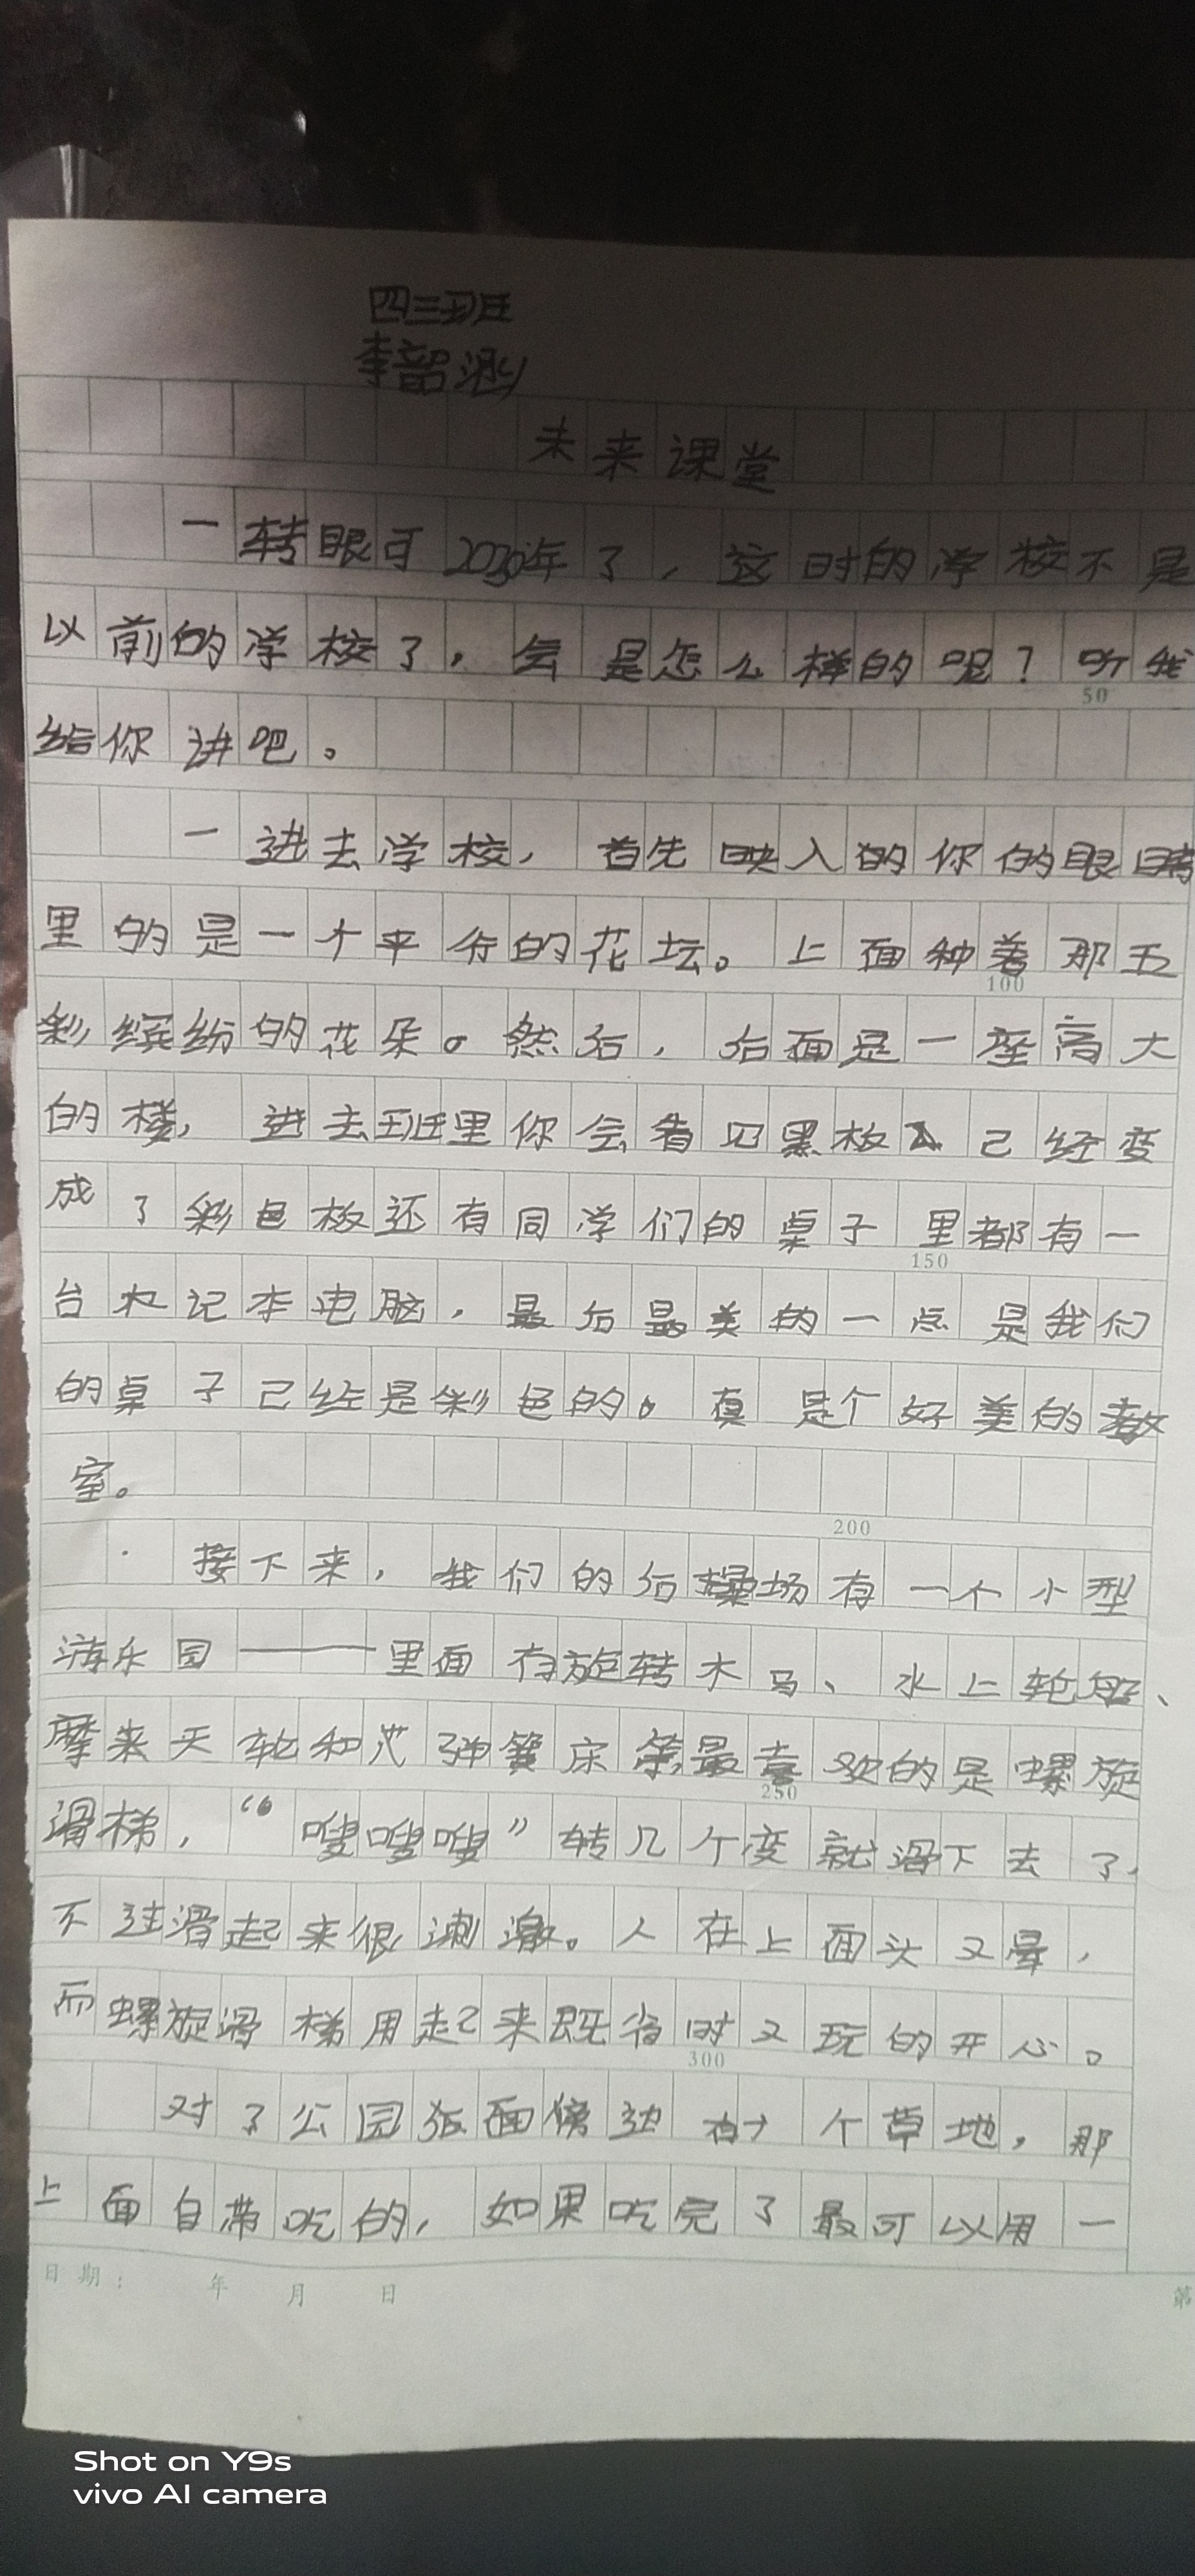 四三班
李韶涵
未来课堂
一转眼可2030年了，这时的学校不是
以前的学校了，会是怎么样的呢？听我
50
给你讲吧。
一进去学校，首先映入的你的眼睛
里的是一个平行的花坛。上面种着那五
100
彩缤纷的花朵。然后，后面是一座高大
的楼，进去班里你会看见黑板已经变
成了彩色板还有同学们的桌子里都有一
150
台木记本电脑，最后最美的一点是我们
的桌子已经是彩色的。真是个好美的教
室。
200
接下来，我们的后操场有一个小型
游乐园——里面有旋转木马、水上轮船、
摩来天轮和弹簧床等最喜欢的是螺旋
250
滑梯，“嗖嗖嗖”转几个变就滑下去了，
不过滑起来很刺激。人在上面头又晕，
而螺旋滑梯用起来既省时又玩的开心。
300
对了公园后面傍边有个草地，那
上面自带吃的，如果吃完了最可以用一
日期： 年 月 日
第
Shot on Y9s
vivo AI camera